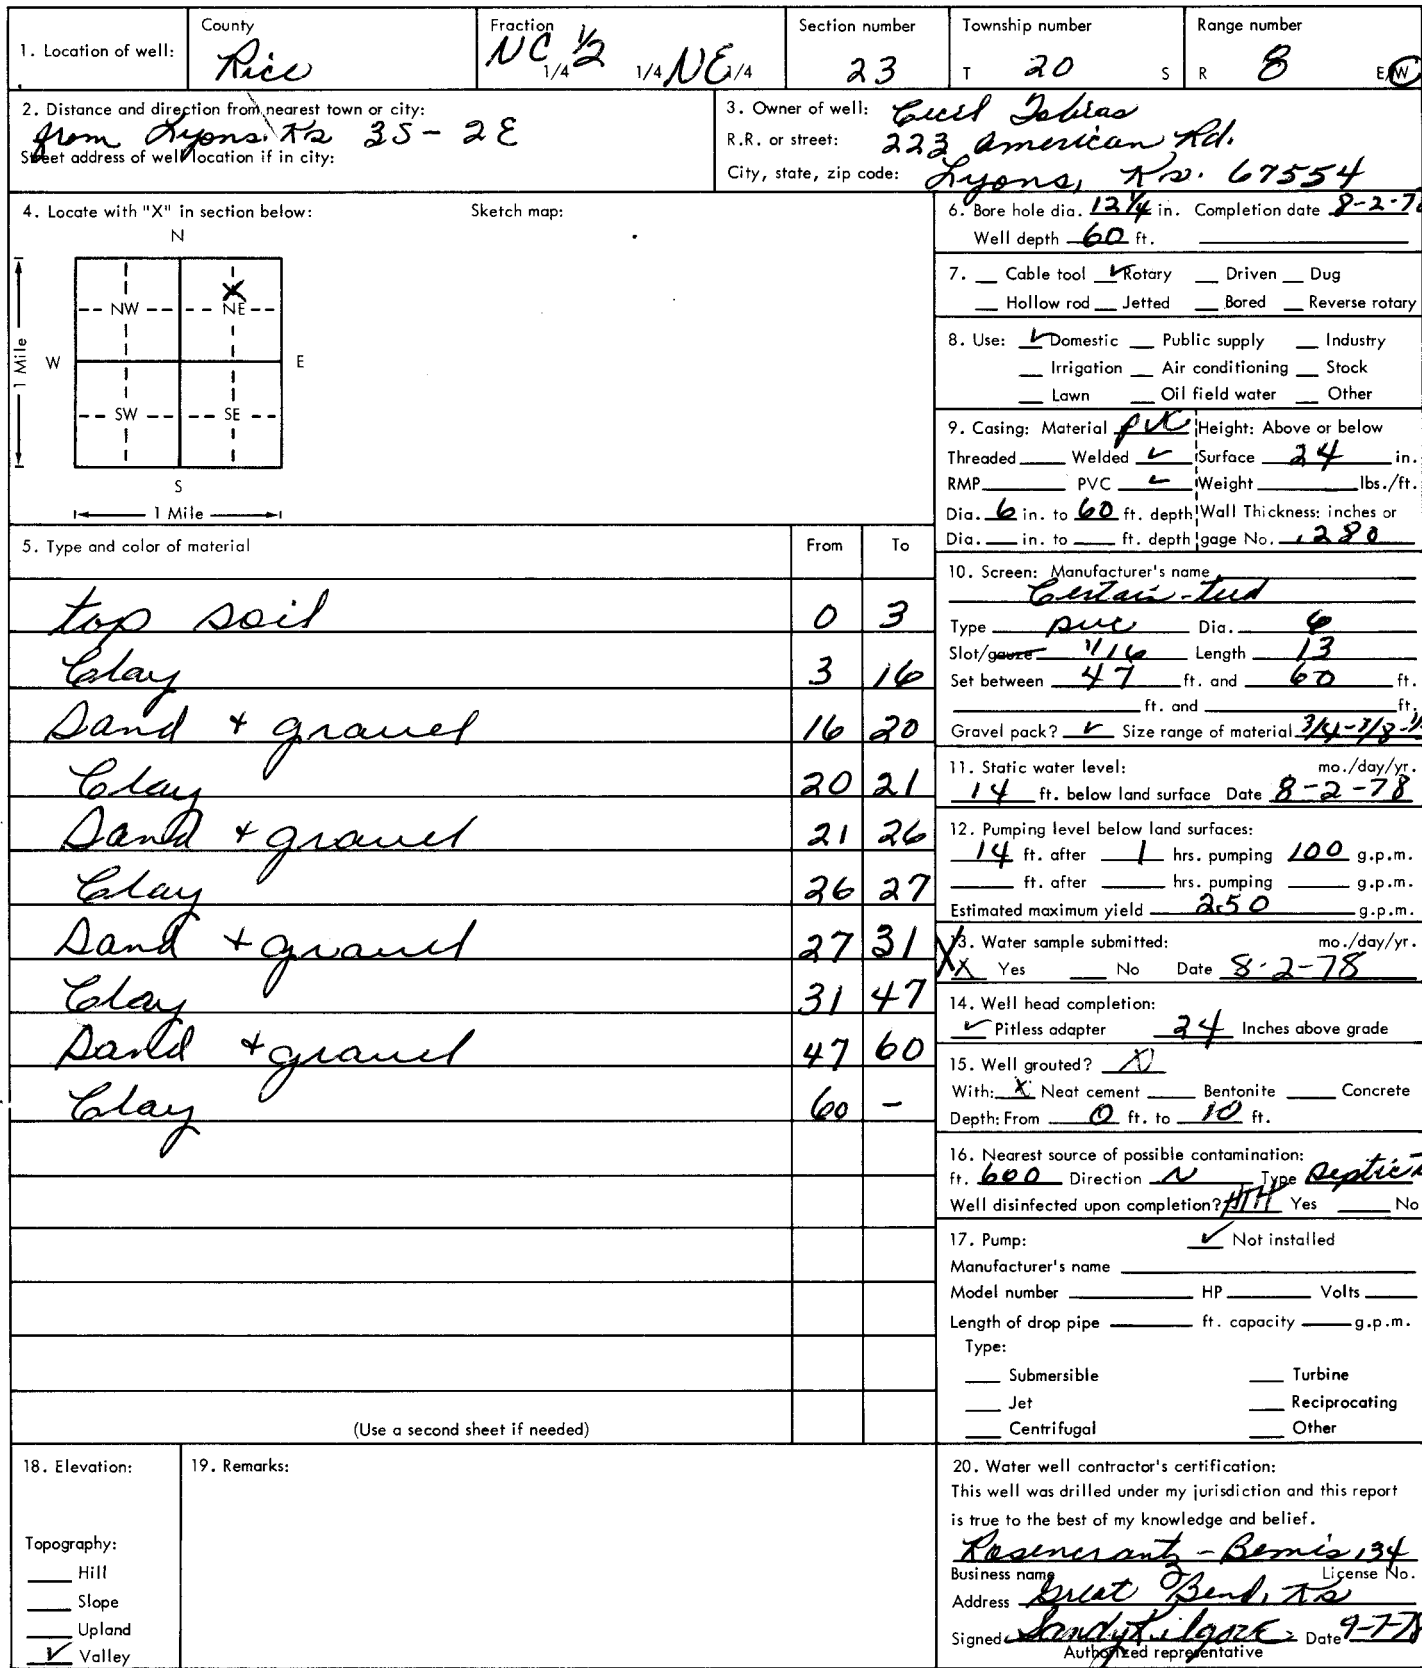 1. Location of well: County Rice Fraction NC 1/2 1/4 1/4 NE 1/4 Section number 23 Township number T 20 S Range number R 8 E/W
2. Distance and direction from nearest town or city: from Lyons Ks 3S - 2E
Street address of well location if in city:
3. Owner of well: Cecil Tobias
R.R. or street: 223 American Rd.
City, state, zip code: Lyons, Ks. 67554
4. Locate with "X" in section below: Sketch map:
N
NW X NE
W E
1 Mile
SW SE
S
1 Mile
5. Type and color of material From To
top soil 0 3
Clay 3 16
Sand + gravel 16 20
Clay 20 21
Sand + gravel 21 26
Clay 26 27
Sand + gravel 27 31
Clay 31 47
Sand + gravel 47 60
Clay 60 -
(Use a second sheet if needed)
6. Bore hole dia. 12 1/4 in. Completion date 8-2-78
Well depth 60 ft.
7. Cable tool ✓ Rotary Driven Dug
Hollow rod Jetted Bored Reverse rotary
8. Use: ✓ Domestic Public supply Industry
Irrigation Air conditioning Stock
Lawn Oil field water Other
9. Casing: Material pvc Height: Above or below
Threaded Welded ✓ Surface 24 in.
RMP PVC ✓ Weight lbs./ft.
Dia. 6 in. to 60 ft. depth Wall Thickness: inches or
Dia. in. to ft. depth gage No. .280
10. Screen: Manufacturer's name
Certain-teed
Type pvc Dia. 6
Slot/gauze 1/16 Length 13
Set between 47 ft. and 60 ft.
ft. and ft.
Gravel pack? ✓ Size range of material 3/4-3/8-
11. Static water level: mo./day/yr.
14 ft. below land surface Date 8-2-78
12. Pumping level below land surfaces:
14 ft. after 1 hrs. pumping 100 g.p.m.
ft. after hrs. pumping g.p.m.
Estimated maximum yield 250 g.p.m.
13. Water sample submitted: mo./day/yr.
X Yes No Date 8-2-78
14. Well head completion:
✓ Pitless adapter 24 Inches above grade
15. Well grouted? X
With: X Neat cement Bentonite Concrete
Depth: From 0 ft. to 10 ft.
16. Nearest source of possible contamination:
ft. 600 Direction N Type Septic
Well disinfected upon completion? HTH Yes No
17. Pump: ✓ Not installed
Manufacturer's name
Model number HP Volts
Length of drop pipe ft. capacity g.p.m.
Type:
Submersible Turbine
Jet Reciprocating
Centrifugal Other
18. Elevation:
Topography:
Hill
Slope
Upland
✓ Valley
19. Remarks:
20. Water well contractor's certification:
This well was drilled under my jurisdiction and this report
is true to the best of my knowledge and belief.
Rosencrantz - Bemis 134
Business name License No.
Address Great Bend, Ks
Signed Sandy Kilgore Date 9-7-78
Authorized representative